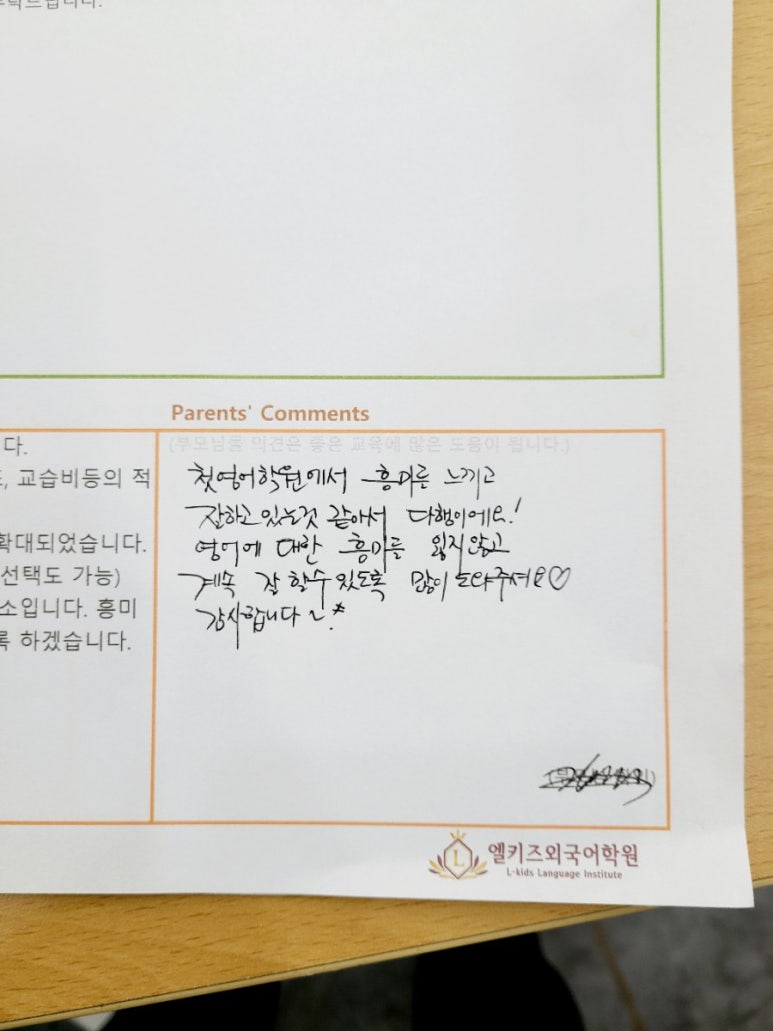 Parents' Comments
다.
(부모님들 의견은 좋은 교육에 많은 도움이 됩니다.)
, 교습비등의 적
확대되었습니다.
선택도 가능)
소입니다. 흥미
록 하겠습니다.
첫영어학원에서 흥미를 느끼고
잘하고 있는것 같아서 다행이에요!
영어에 대한 흥미를 잃지않고
계속 잘 할수있도록 많이 도와주셔요♡
감사합니다~*
L
엘키즈외국어학원
L-kids Language Institute